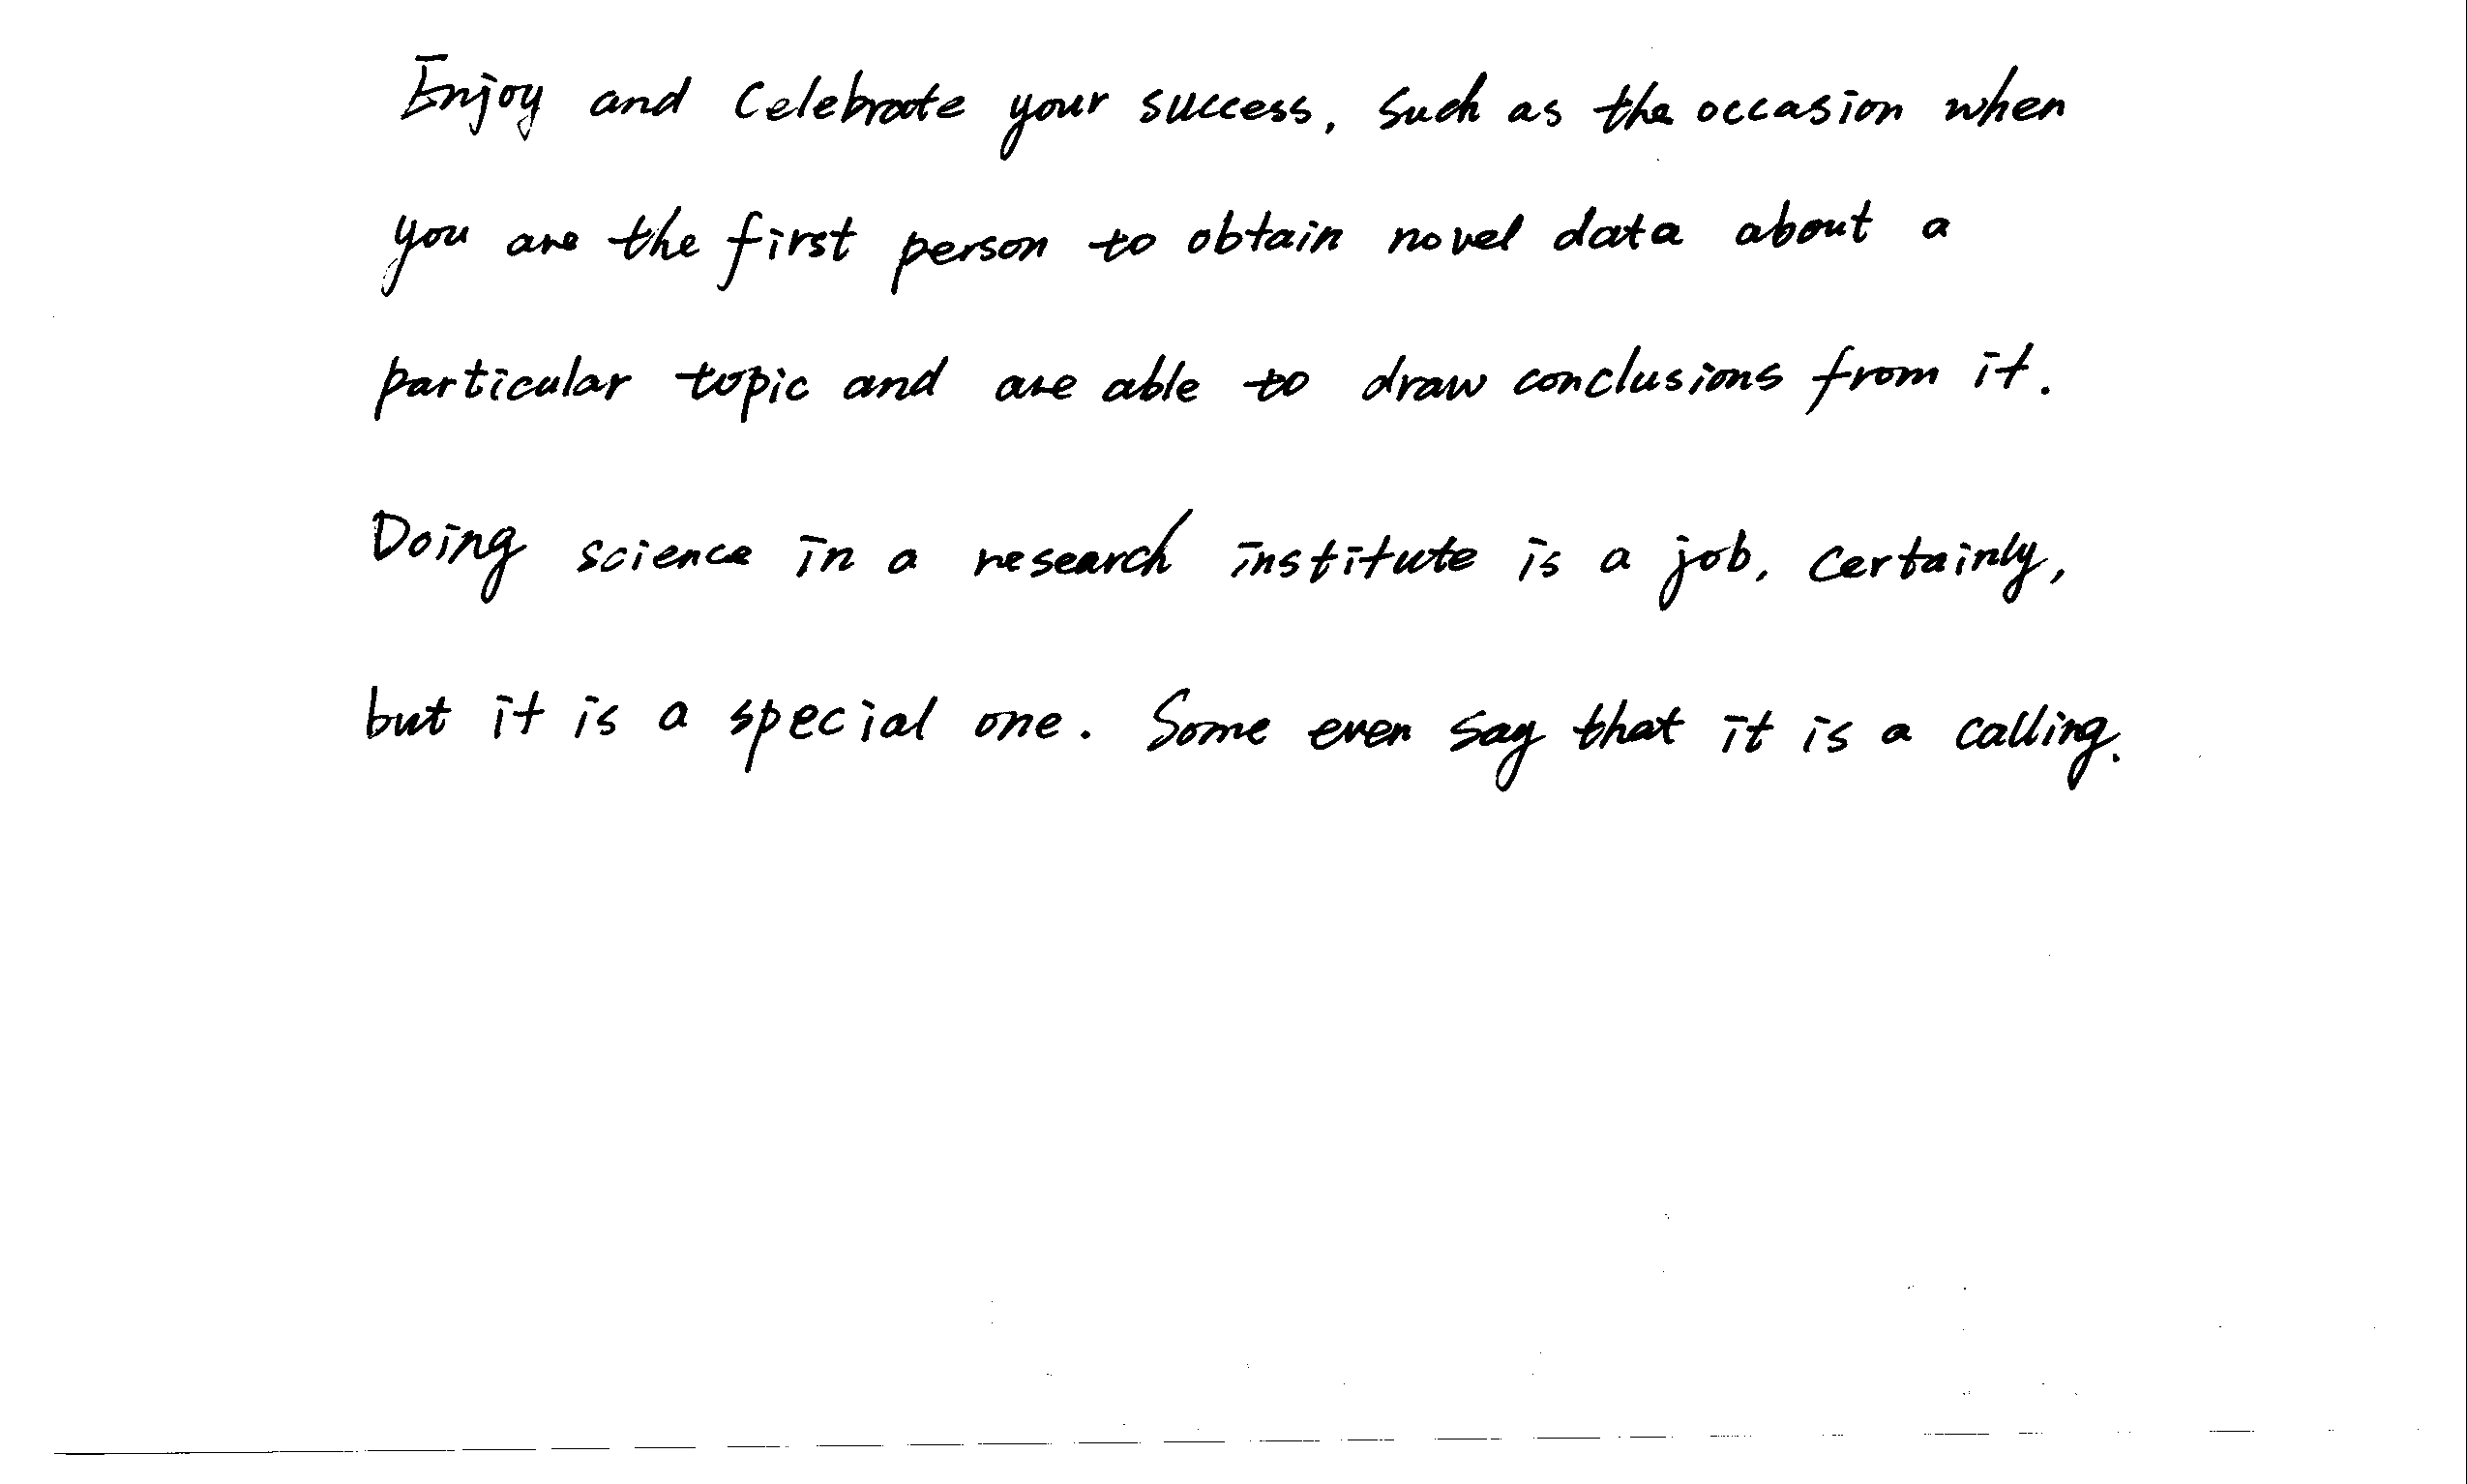 Enjoy and celebrate your success, such as the occasion when
you are the first person to obtain novel data about a
particular topic and are able to draw conclusions from it.
Doing science in a research institute is a job, certainly,
but it is a special one. Some even say that it is a calling.